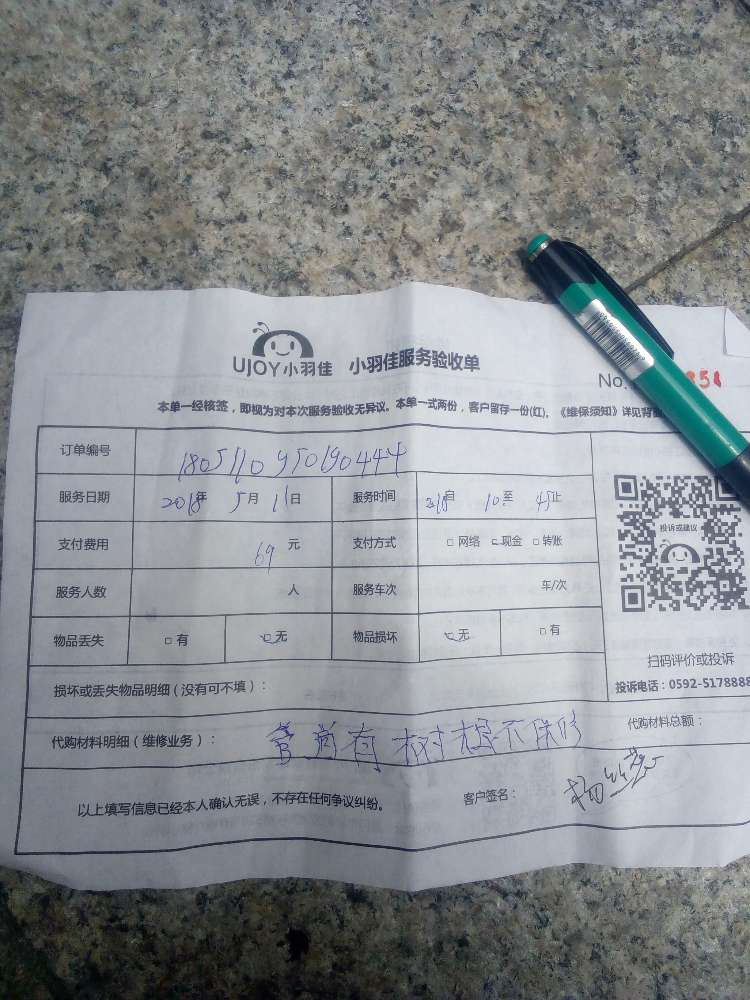 UJOY小羽佳 小羽佳服务验收单
No. 351
本单一经核签，即视为对本次服务验收无异议。本单一式两份，客户留存一份(红)。《维保须知》详见背面
订单编号 1805110950190444
服务日期 2018年 5月 11日 服务时间 自 10 至 45止
支付费用 69 元 支付方式 □网络 □现金 □转账
服务人数 人 服务车次 车/次
物品丢失 □有 □无 物品损坏 □无 □有
投诉或建议
扫码评价或投诉
投诉电话：0592-5178888
损坏或丢失物品明细（没有可不填）：
代购材料明细（维修业务）： 管道有树根不保修 代购材料总额：
以上填写信息已经本人确认无误，不存在任何争议纠纷。 客户签名： 杨